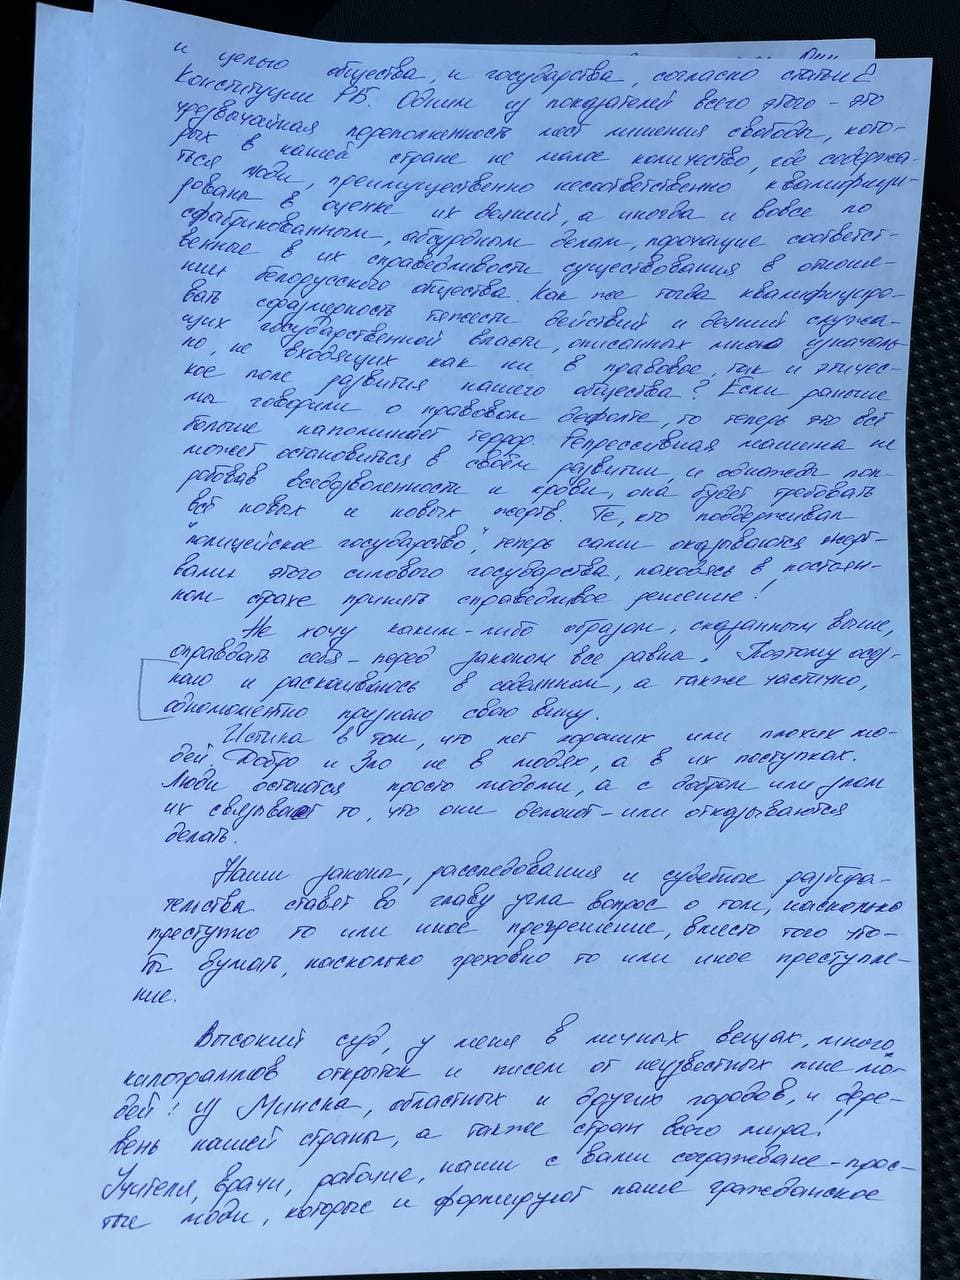 и целью общества, и государства, согласно статьи 2
Конституции РБ. Одним из показателей всего этого – это
чрезвычайная переполненность мест лишения свободы, кото-
рых в нашей стране не малое количество, где содержа-
ться люди, преимущественно несоответственно квалифици-
рованы в оценке их деяний, а иногда и вовсе по
сфабрикованным, абсурдным делам, порочащие соответст-
венные в их справедливости существования в отноше-
нии белорусского общества. Как же тогда квалифициро-
вать сфразмерность тяжести действий и деяний служа-
щих государственной власти, описанных мною изначаль
но, не входящих как ни в правовое, так и этичес-
кое поле развития нашего общества? Если раньше
мы говорили о правовом дефолте, то теперь это всё
больше напоминает террор. Репрессивная машина не
может остановиться в своём развитии, и однажды поп-
робовав вседозволенности и крови, она будет требовать
всё новых и новых жертв. Те, кто поддерживал
"полицейское государство", теперь сами оказываются жерт-
вами этого силового государства, находясь в постоян-
ном страхе принять справедливое решение!
Не хочу каким-либо образом, сказанным выше,
оправдать себя – перед законом все равны. Поэтому осоз-
наю и раскаиваюсь в содеянном, а также частично,
одномоментно признаю свою вину.
Истина в том, что нет хороших или плохих лю-
дей. Добро и Зло не в людях, а в их поступках.
Люди остаются просто людьми, а с добром или злом
их связывает то, что они делают – или отказываются
делать.
Наши законы, расследования и судебные разбира-
тельства ставят во главу угла вопрос о том, насколько
преступно то или иное прегрешение, вместо того что-
бы думать, насколько греховно то или иное преступле-
ние.
Высокий суд, у меня в личных вещах, много
килограммов открыток и писем от неизвестных мне лю-
дей! из Минска, областных и других городов, и дере-
вень нашей страны, а также стран всего мира!
Учителя, врачи, рабочие, наши с вами сограждане – прос-
тые люди, которые и формируют наше гражданское